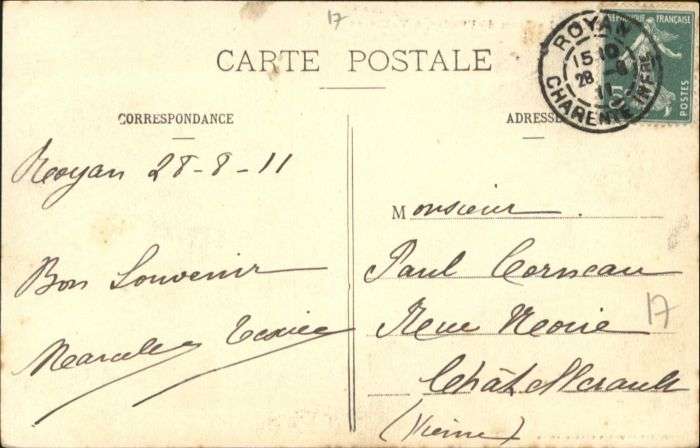 17
CARTE POSTALE
CORRESPONDANCE
ADRESSE
ROYAN
15 10
28 - 8
11
CHARENTE INFRE
RÉPUBLIQUE FRANÇAISE
POSTES
Royan 28-8-11
Bon Souvenir
Marcelle
Monsieur
Paul Corneau
Rue Noire
Châtellerault
(Vienne)
17